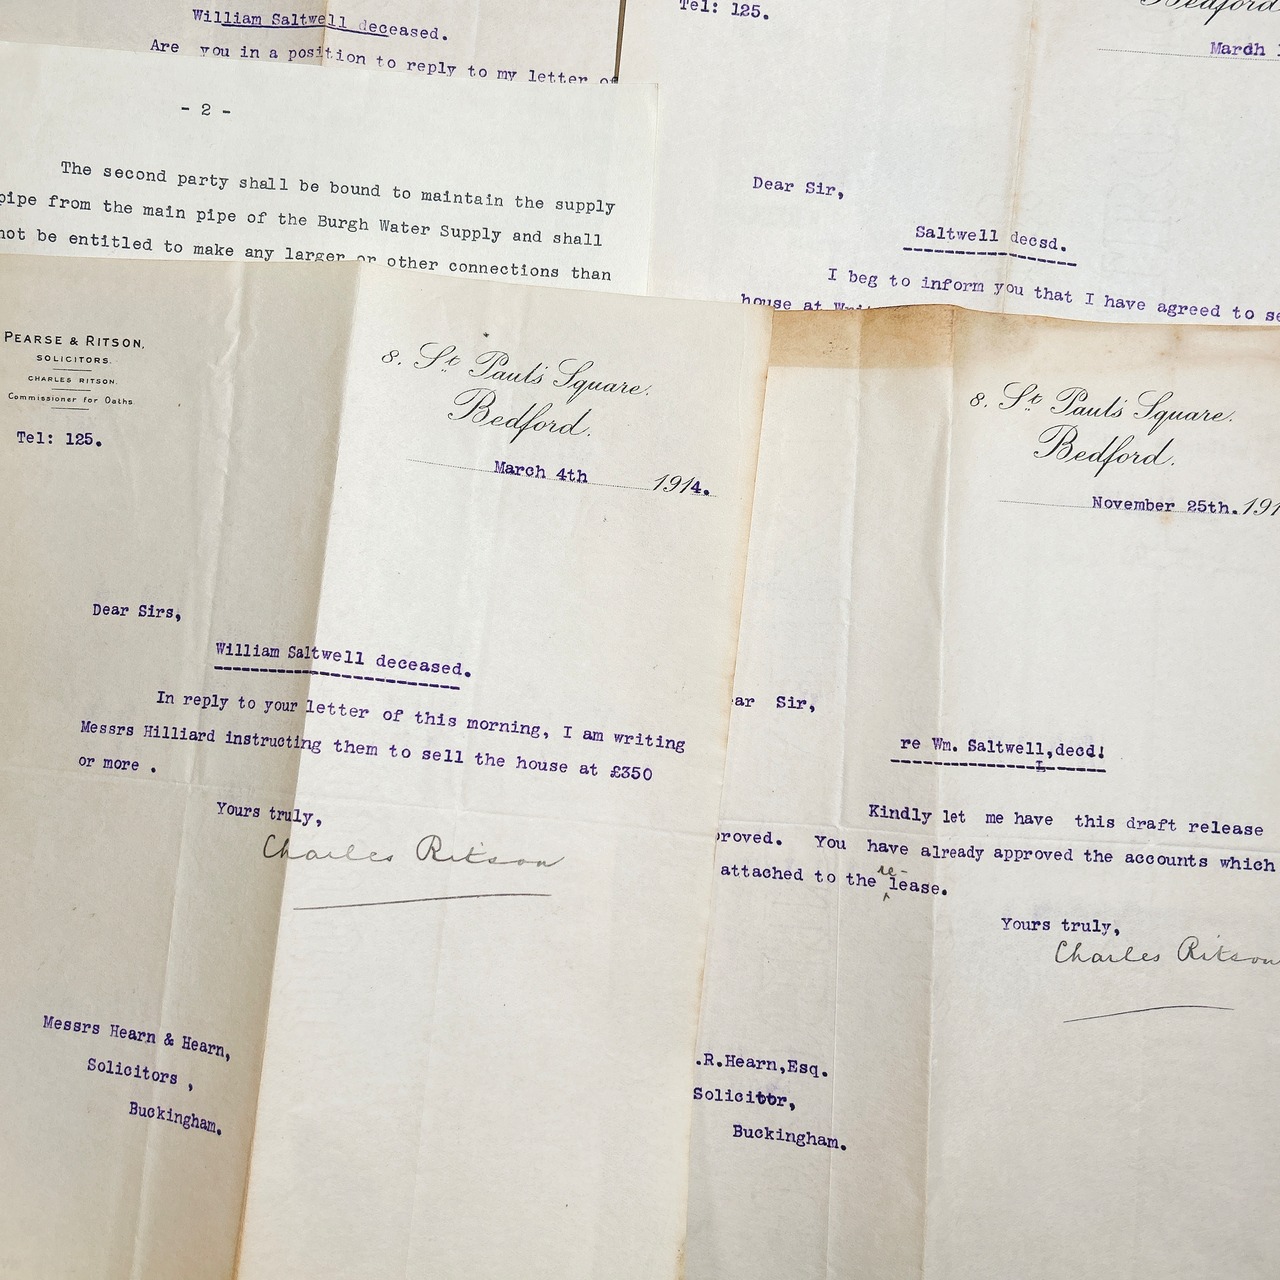 William Saltwell deceased.
Are you in a position to reply to my letter of
- 2 -
The second party shall be bound to maintain the supply
pipe from the main pipe of the Burgh Water Supply and shall
not be entitled to make any larger or other connections than
Tel: 125.
Bedford
March
Dear Sir,
Saltwell decsd.
I beg to inform you that I have agreed to se
house at
PEARSE & RITSON,
SOLICITORS.
CHARLES RITSON.
Commissioner for Oaths.
Tel: 125.
8. St. Paul's Square.
Bedford.
March 4th 1914.
Dear Sirs,
William Saltwell deceased.
In reply to your letter of this morning, I am writing
Messrs Hilliard instructing them to sell the house at £350
or more .
Yours truly,
Charles Ritson
Messrs Hearn & Hearn,
Solicitors ,
Buckingham.
8. St. Paul's Square.
Bedford.
November 25th. 191
ear Sir,
re Wm. Saltwell,decd!
Kindly let me have this draft release
proved. You have already approved the accounts which
attached to the re-lease.
Yours truly,
Charles Ritson
.R.Hearn,Esq.
Solicittor,
Buckingham.